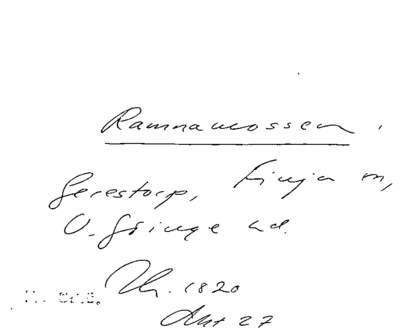 Ramnamossen.
Gerestorp, Finja sn,
V. Göinge hd.
1820
Akt 27